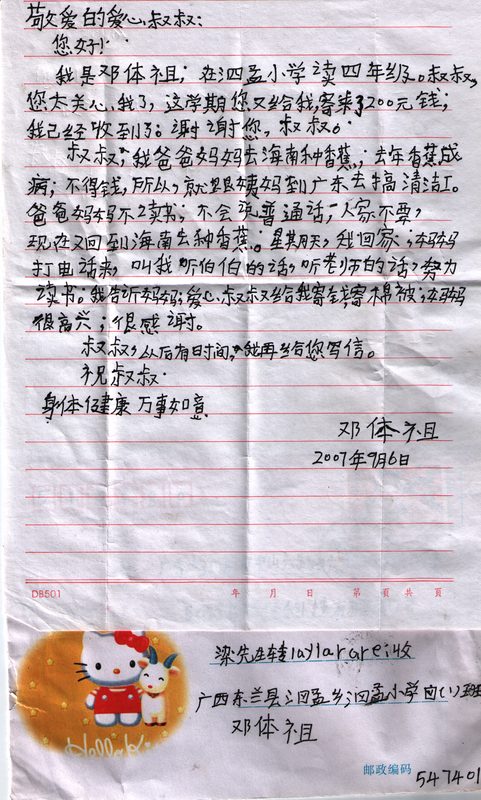 敬爱的爱心叔叔：
您好！
我是邓体祖；在泗孟小学读四年级。叔叔，
您太关心我了，这学期您又给我寄来了200元钱，
我已经收到了。谢谢您，叔叔。
叔叔，我爸爸妈妈去海南种香蕉；去年香蕉成
病；不得钱，所以，就跟姨妈到广东去搞清洁工。
爸爸妈妈不读书，不会说普通话，人家不要，
现在又回到海南去种香蕉。星期天，我回家；妈妈
打电话来，叫我听伯伯的话，听老师的话，努力
读书。我告诉妈妈，爱心叔叔又给我寄钱，寄棉被；妈妈
很高兴，很感谢。
叔叔，以后有时间，我再给您写信。
祝叔叔
身体健康 万事如意
邓体祖
2007年9月6日
DB501 年 月 日 第 页 共 页
Hello Ki
梁先生转laylararei收
广西东兰县泗孟乡泗孟小学四(1)班
邓体祖
邮政编码 547401